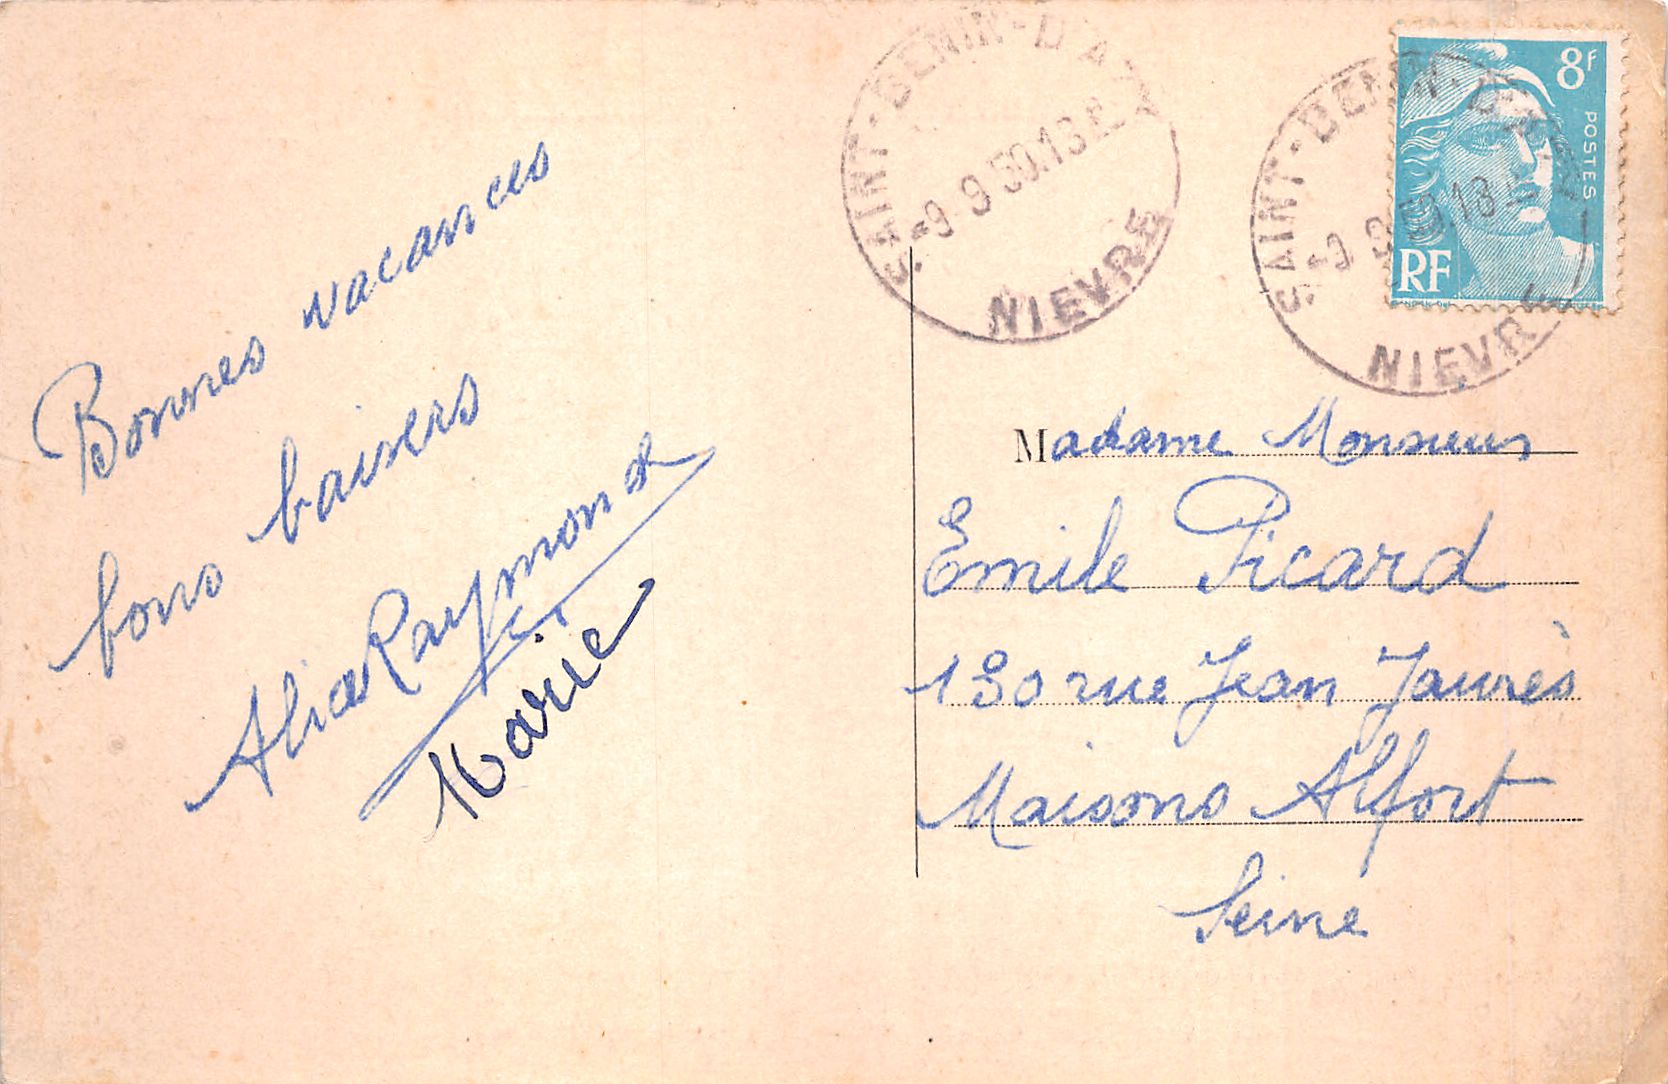 Bonnes vacances
bons baisers
Alice Raymond
et
Marie
SAINT-BENIN-D'AZY
-9-9 50.13 E
NIEVRE
SAINT-BENIN-D'AZY
-9 9 50.13
NIEVRE
8F
POSTES
RF
Madame Monsieur
Emile Picard
130 rue Jean Jaurès
Maisons Alfort
Seine